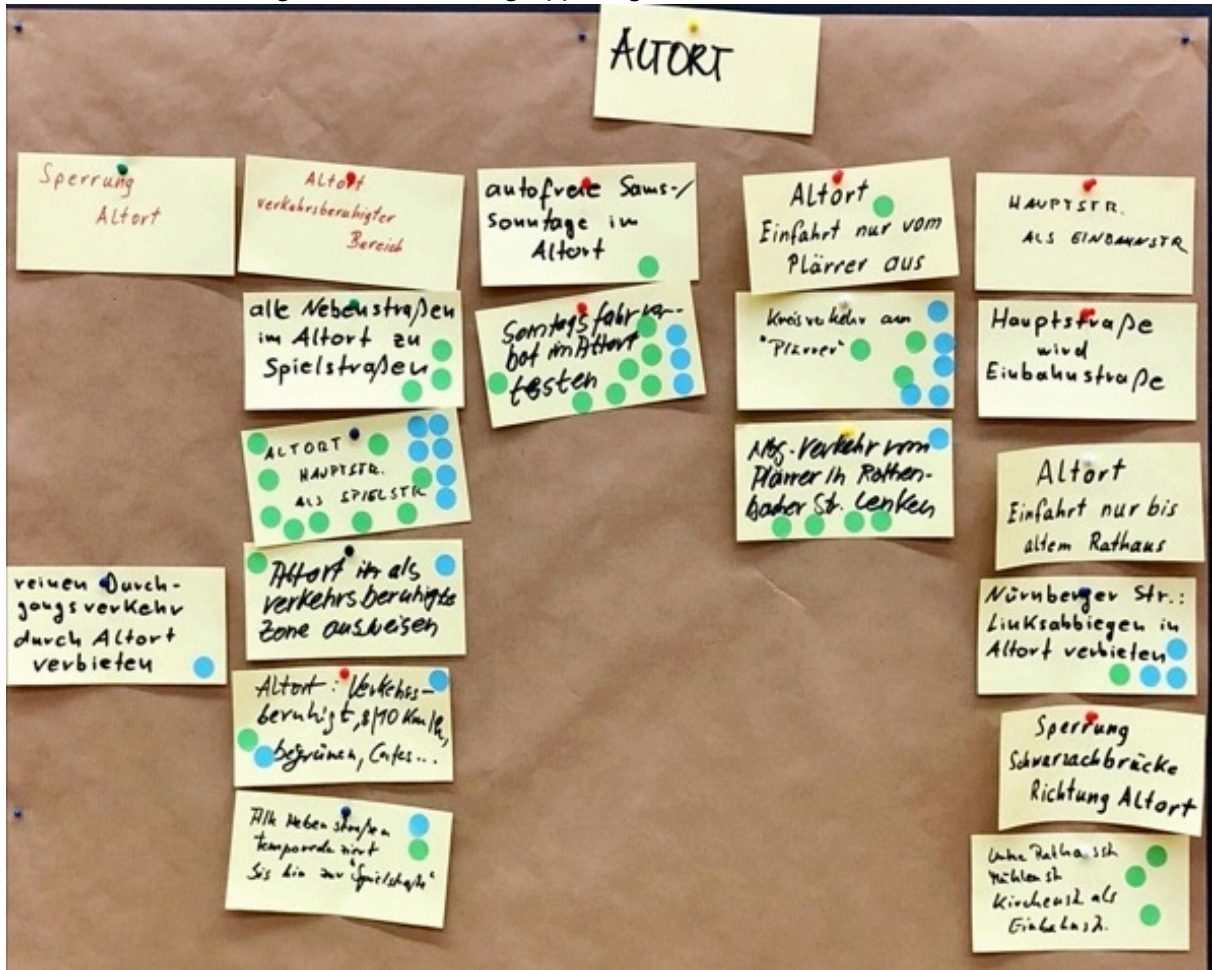 ALTORT
Sperrung
Altort
Altort
verkehrsberuhigter
Bereich
alle Nebenstraßen
im Altort zu
Spielstraßen
ALTORT
HAUPTSTR.
ALS SPIELSTR
Altort als
verkehrsberuhigte
Zone ausweisen
Altort: Verkehrs-
beruhigt, 8/10 Km/h,
begrünen, Cafes...
Alle Nebenstraßen
bis hin zur "Spielstraße"
reinen Durch-
gangsverkehr
durch Altort
verbieten
autofreie Sams-/
Sonntage im
Altort
Sonntagsfahrver-
bot im Altort
testen
Altort
Einfahrt nur vom
Plärrer aus
Kreisverkehr am
"Plärrer"
Nbg.-Verkehr vom
Plärrer in Röthen-
bacher Str. lenken
HAUPTSTR.
ALS EINBAHNSTR
Hauptstraße
wird
Einbahnstraße
Altort
Einfahrt nur bis
altem Rathaus
Nürnberger Str.:
Linksabbiegen in
Altort verbieten
Sperrung
Schwarzachbrücke
Richtung Altort
Mühlenstr
Kirchenstr als
Einbahnstr.